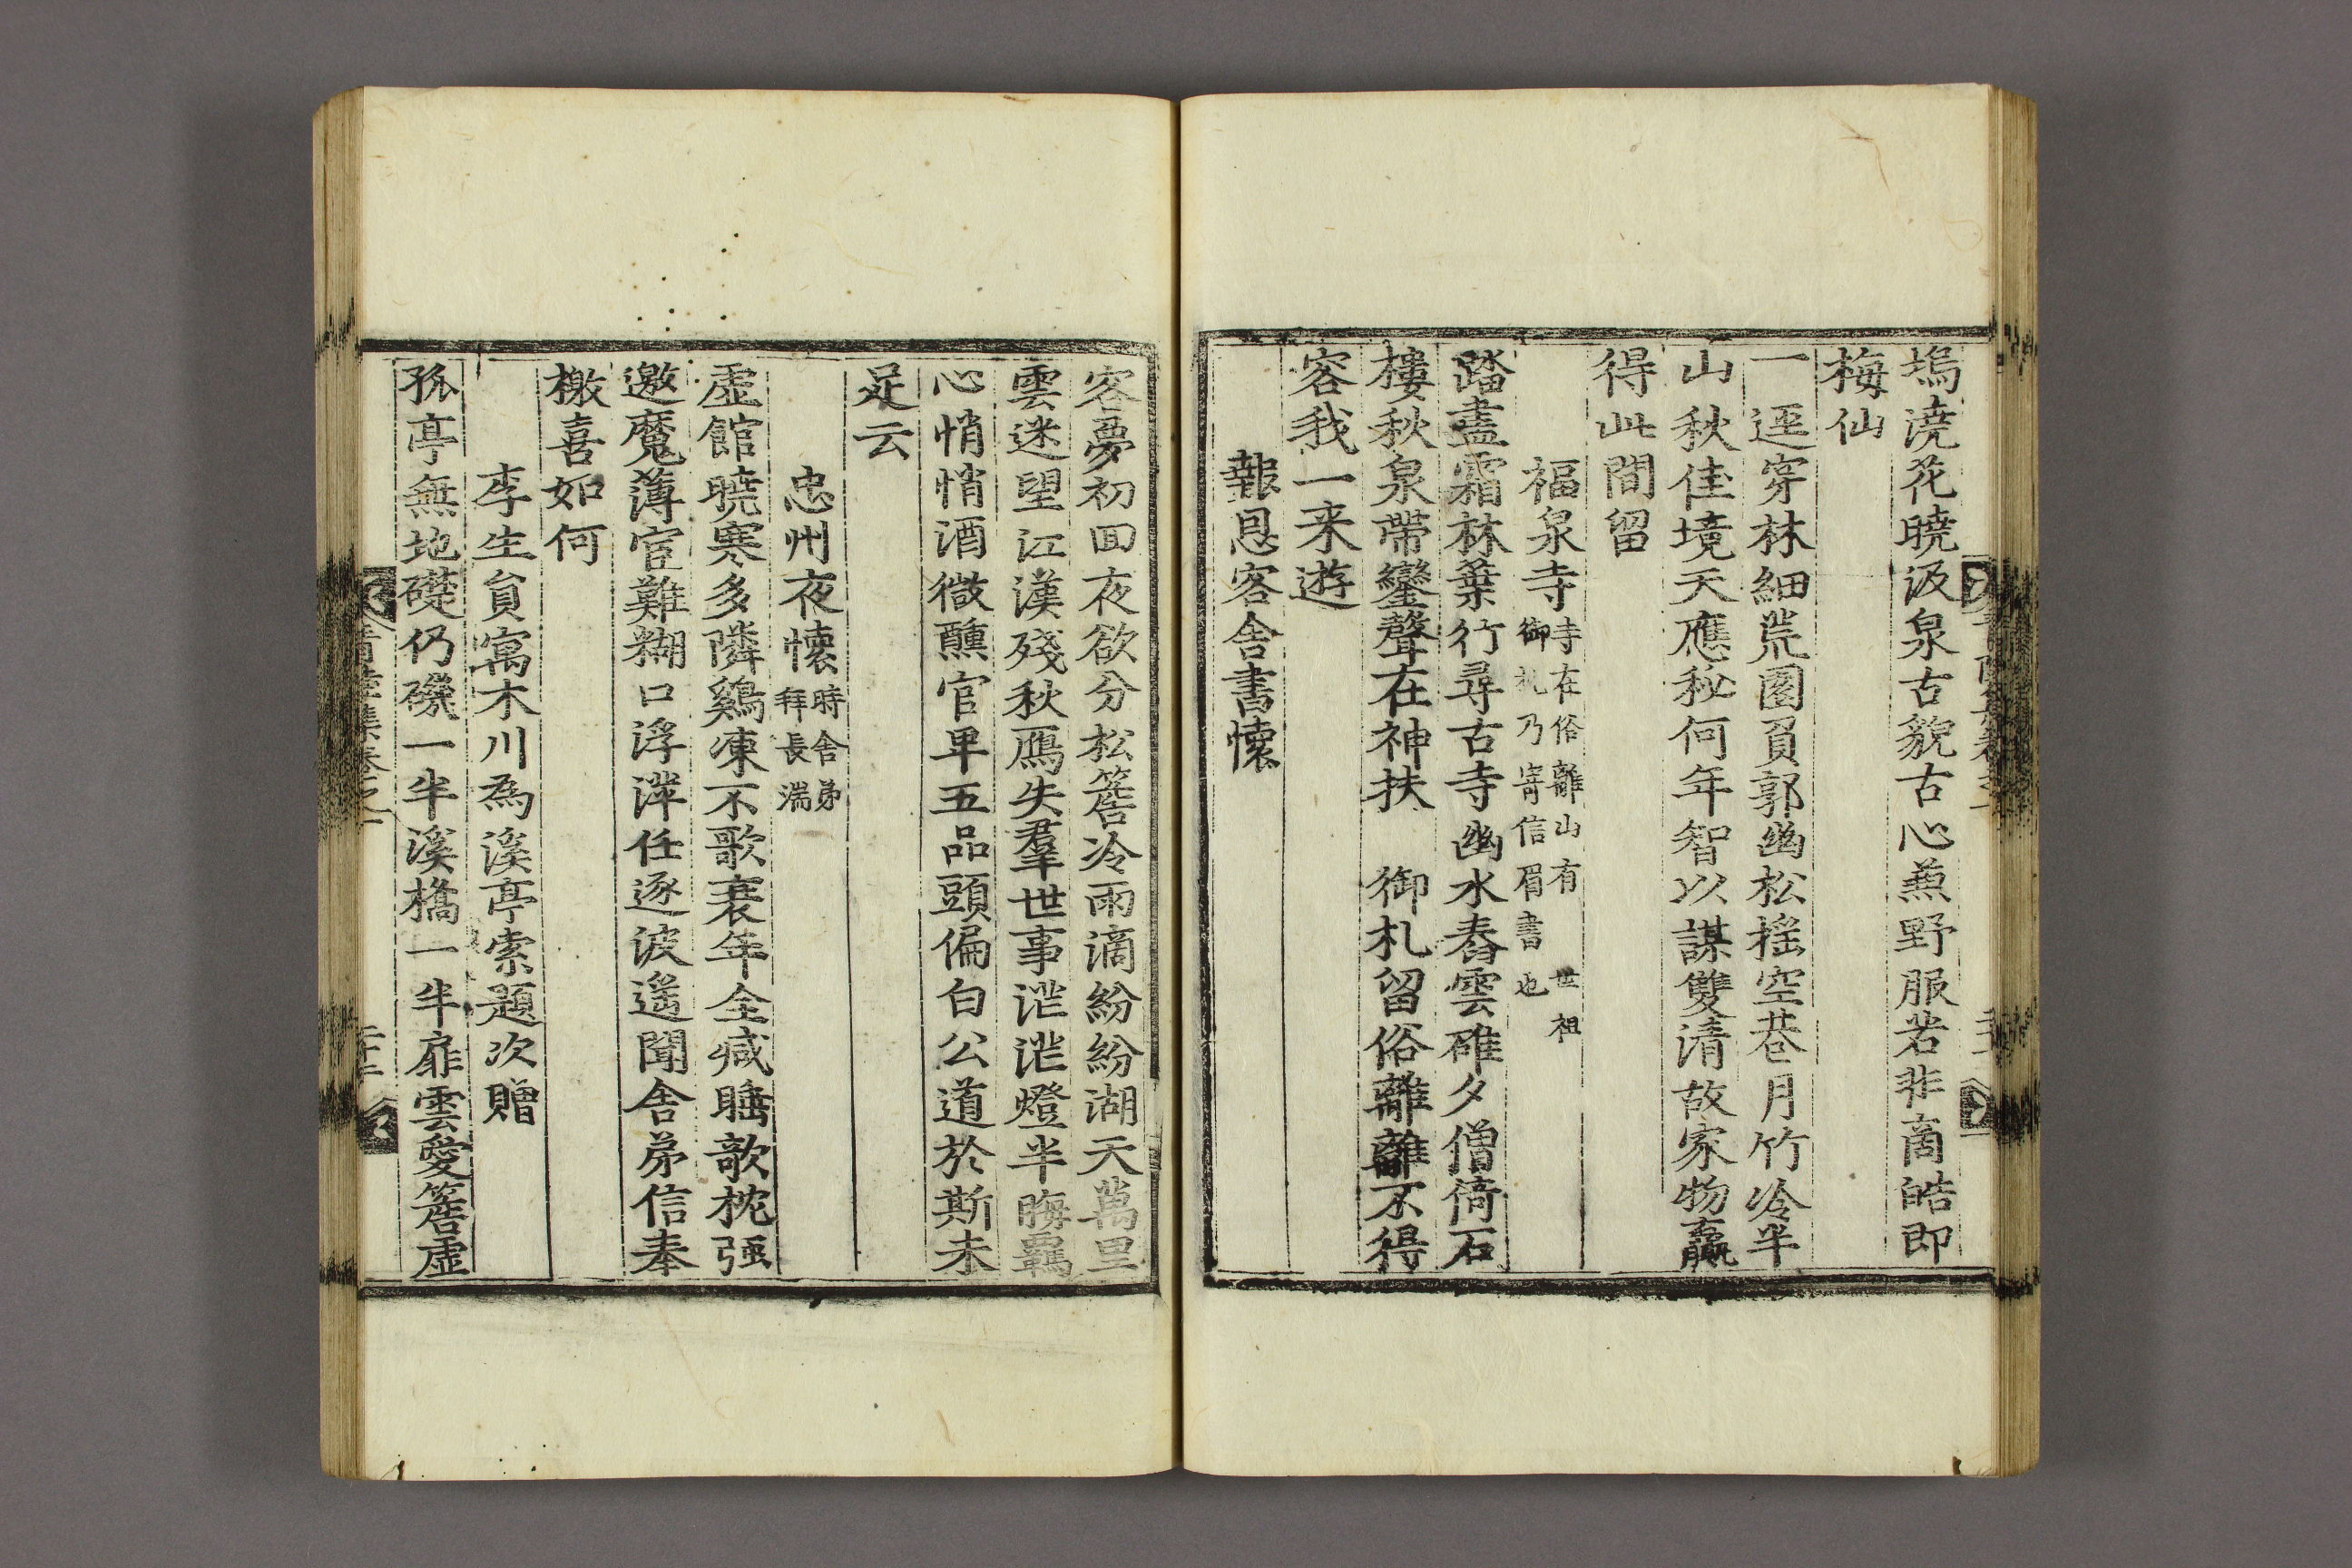 塢澆花曉汲泉古貌古心兼野服若非商皓即
梅仙
一逕穿林細荒園負郭幽松搖空巷月竹冷半
山秋佳境天應秘何年智以謀雙清故家物贏
得此間留
福泉寺寺在俗離山有 世祖
御札乃寄信眉書也
踏盡霜林葉行尋古寺幽水舂雲碓夕僧倚石
樓秋泉帶鑾聲在神扶 御札留俗離離不得
容我一来遊
報恩客舍書懷
客夢初回夜欲分松簷冷雨滴紛紛湖天萬里
雲迷望江漢殘秋鴈失羣世事茫茫燈半晦羈
心悄悄酒微醺官卑五品頭偏白公道於斯未
足云
忠州夜懷時舍弟
拜長湍
虛館曉寒多隣鷄凍不歌衰年全减睡欹枕强
邀魔薄宦難糊口浮萍任逐波遙聞舍弟信奉
檄喜如何
李生貟寓木川爲溪亭索題次贈
孤亭無地礎仍磯一半溪橋一半扉雲愛簷虛